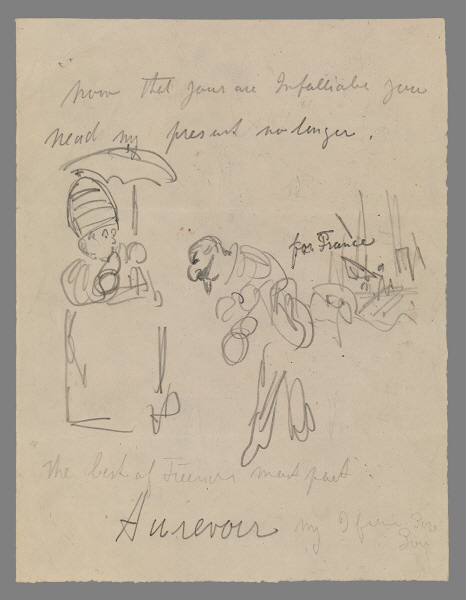 now that your are Infalliable you
need my present no longer.
for France
"The best of Frienrs must part
Aurevoir my